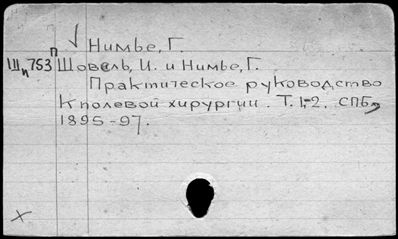 Нимье, Г.
П
Ши 753 Шовель, И. и Нимье, Г.
Практическое руководство
К полевой хирургии. Т. 1-2. СПБ,
1895-97.